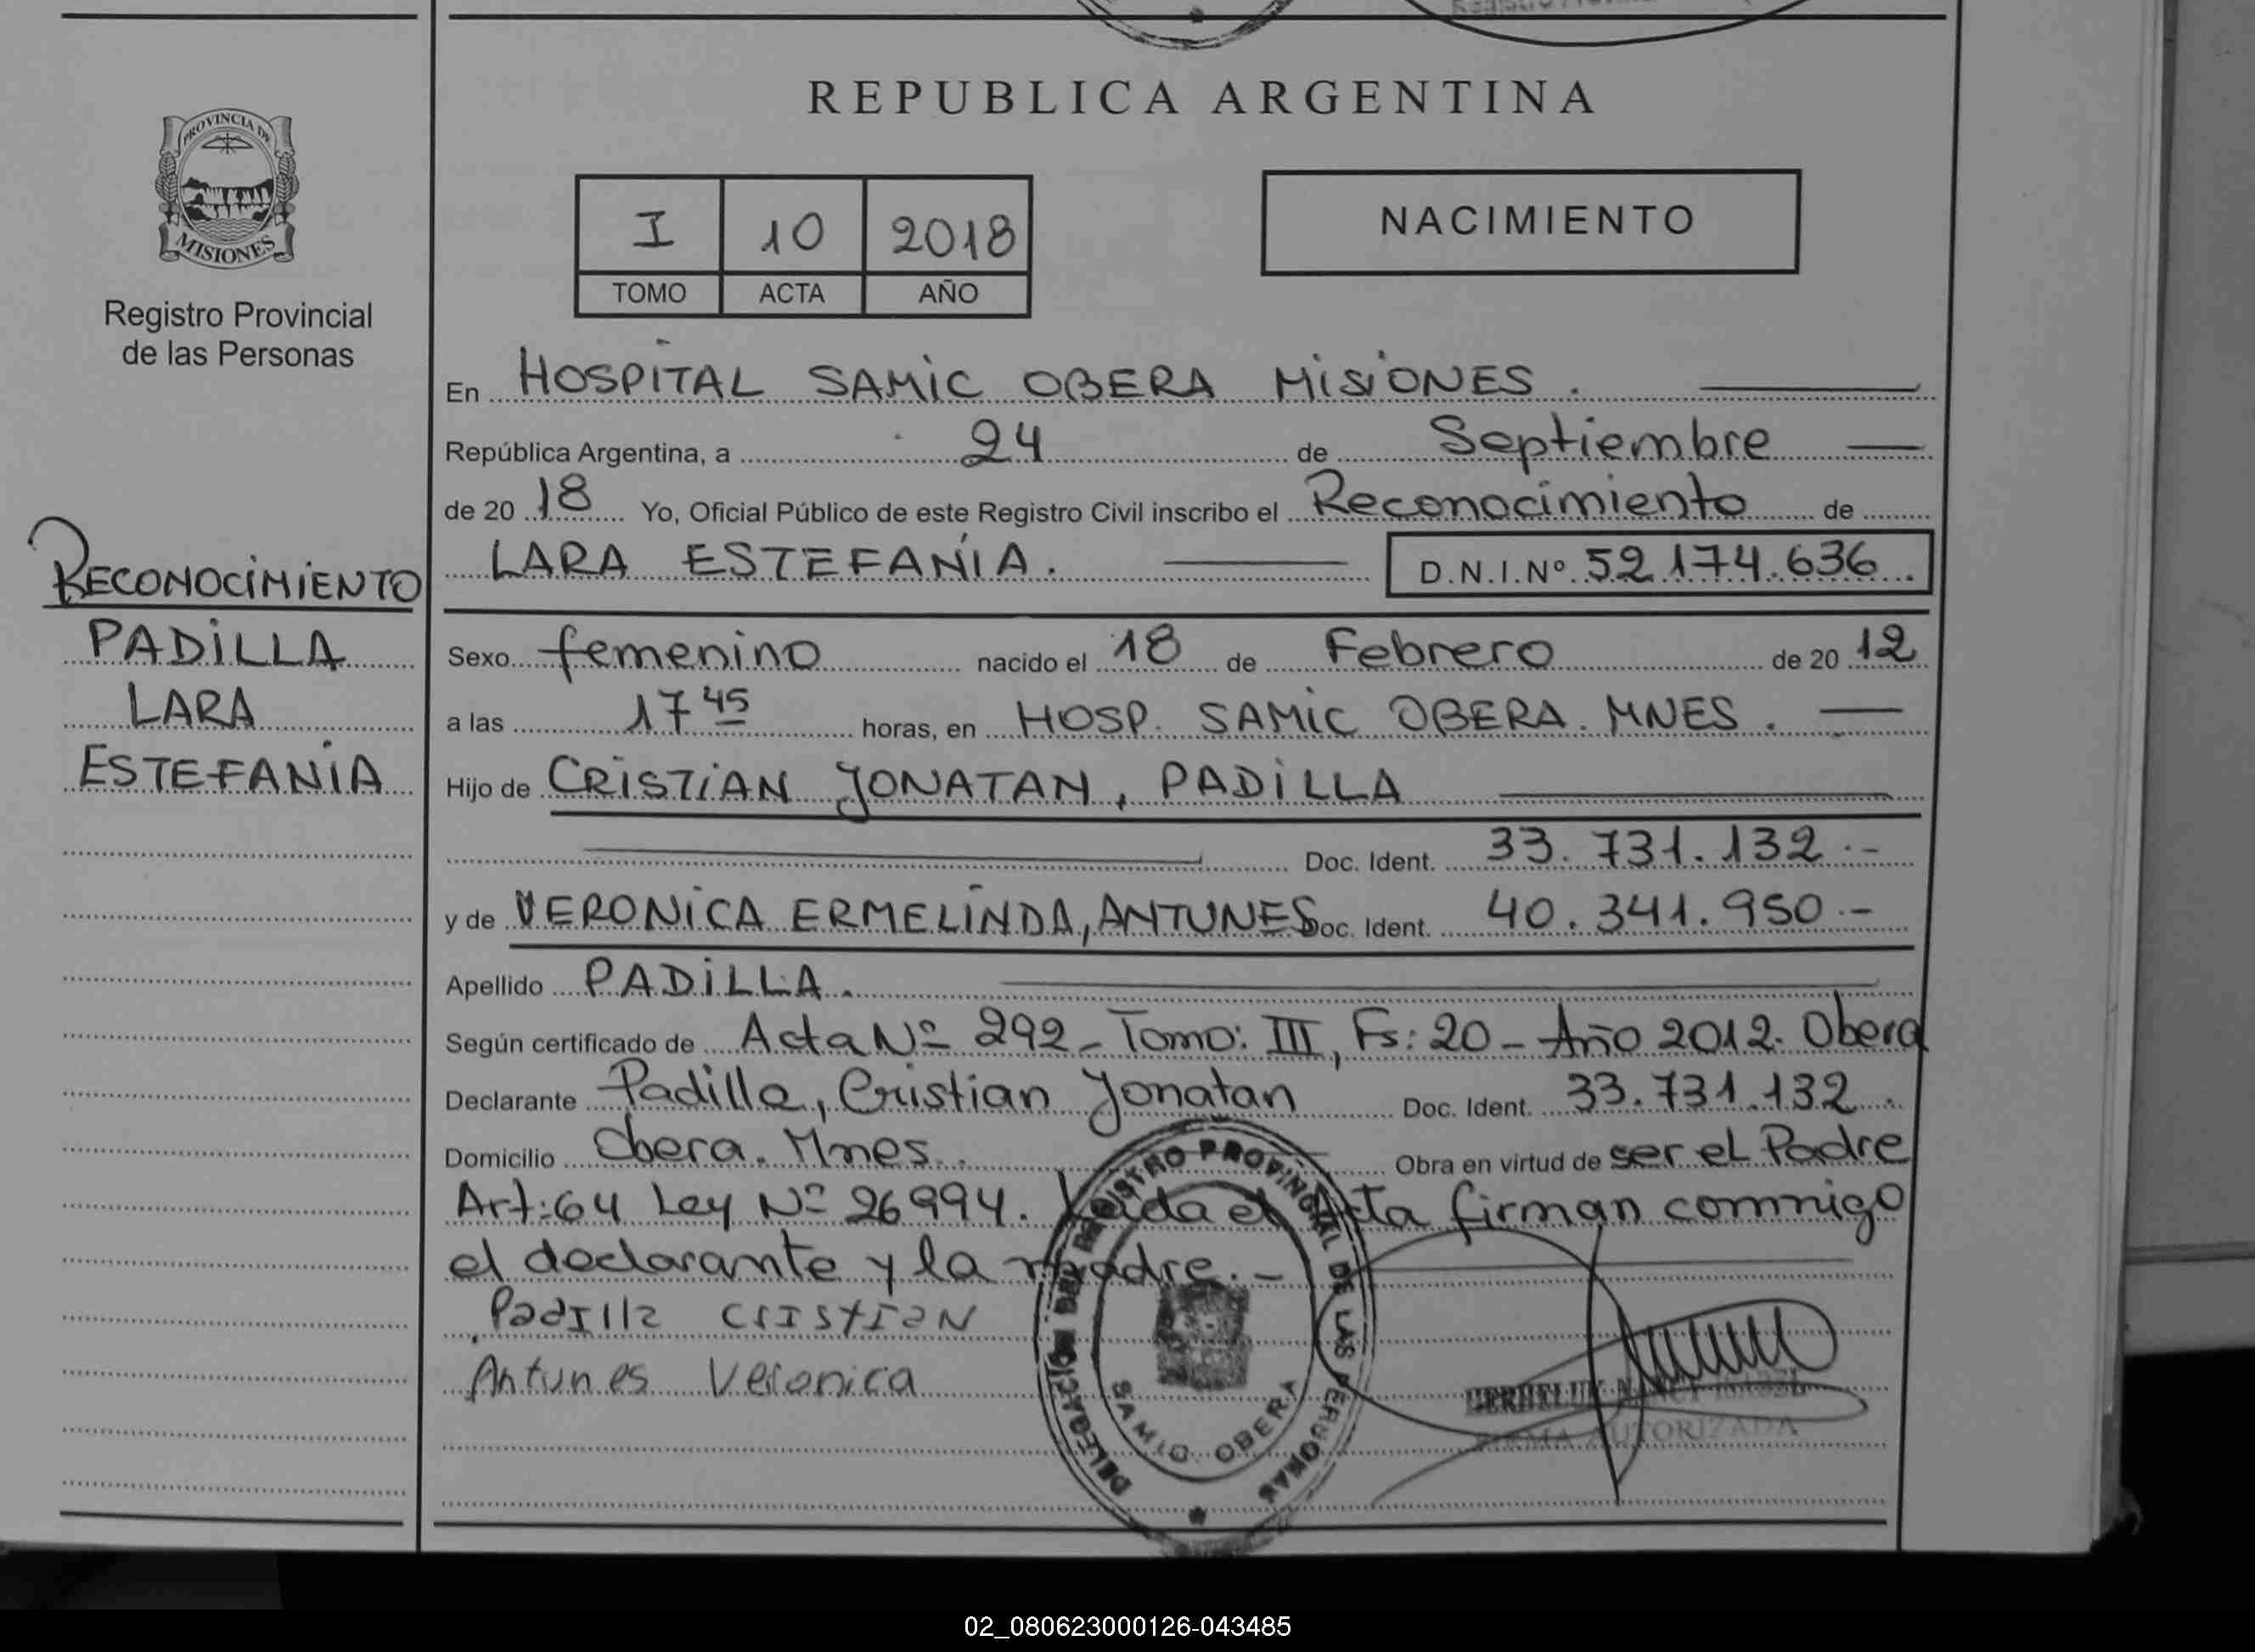 REPUBLICA ARGENTINA
PROVINCIA DE
MISIONES
Registro Provincial
de las Personas
I 10 2018
TOMO ACTA AÑO
NACIMIENTO
En HOSPITAL SAMIC OBERA MISIONES.
República Argentina, a 24 de Septiembre
de 20 18 Yo, Oficial Público de este Registro Civil inscribo el Reconocimiento de
LARA ESTEFANÍA. D.N.I.Nº 52.174.636.
RECONOCIMIENTO
PADILLA
LARA
ESTEFANÍA
Sexo femenino nacido el 18 de Febrero de 20 12
a las 17 45 horas, en HOSP. SAMIC OBERA. MNES.
Hijo de CRISTIAN JONATAN, PADILLA
Doc. Ident. 33.731.132.-
y de VERONICA ERMELINDA, ANTUNES Doc. Ident. 40.341.950.-
Apellido PADILLA.
Según certificado de Acta Nº 292 - Tomo: III, Fs: 20 - Año 2012. Obera
Declarante Padilla, Cristian Jonatan Doc. Ident. 33.731.132.
Domicilio Obera. Mnes. Obra en virtud de ser el Padre
Art: 64 Ley Nº 26994. Leida el Acta firman conmigo
el declarante y la madre.-
Padilla Cristian
Antunes Veronica
DELEGACION DEL REGISTRO PROVINCIAL DE LAS PERSONAS
SAMIC OBERA
FIRMA AUTORIZADA
02_080623000126-043485